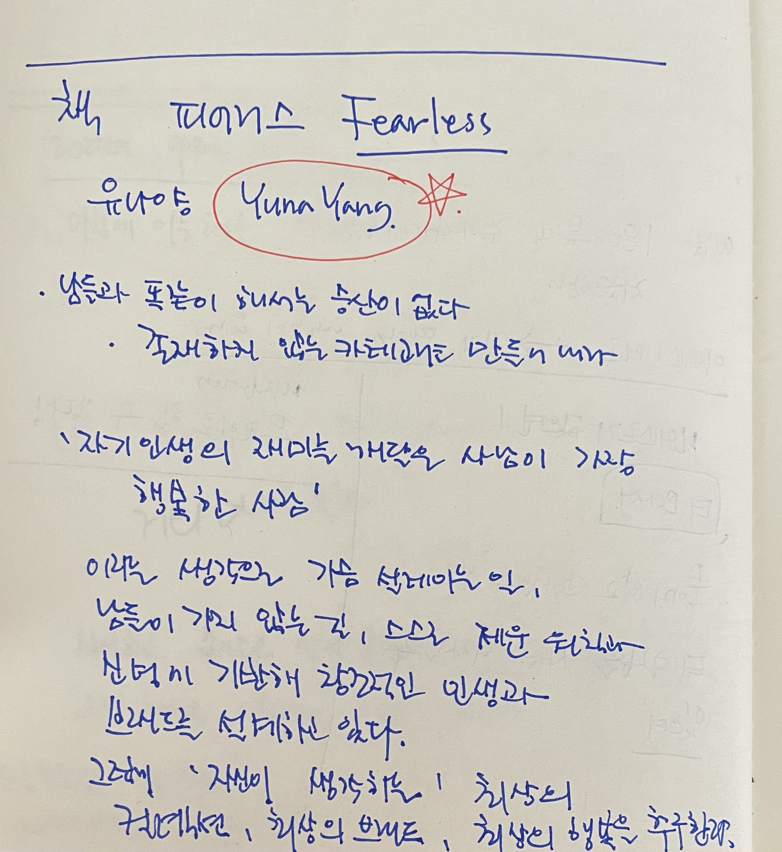 책 피어리스 Fearless
유나양 Yuna Yang.
· 남들과 똑같이 해서는 승산이 없다
· 존재하지 않는 카테고리를 만들어 내라
'자기 인생의 재미를 깨달은 사람이 가장
행복한 사람'
이라는 생각으로 가슴 설레이는 일,
남들이 가지 않는 길, 스스로 세운 원칙과
신념에 기반해 창조적인 인생과
브랜드를 설계하고 있다.
그렇게 '자신이 생각하는' 최상의
컬렉션, 최상의 브랜드, 최상의 행복을 추구한다.